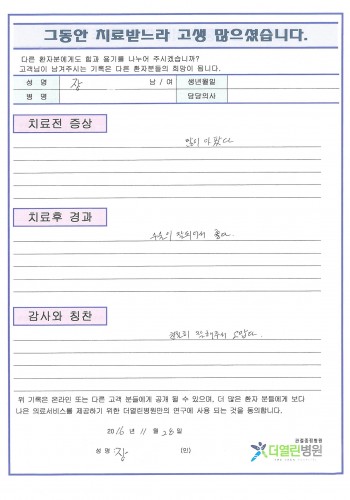 그동안 치료받느라 고생 많으셨습니다.
다른 환자분에게도 힘과 용기를 나누어 주시겠습니까?
고객님이 남겨주시는 기록은 다른 환자분들의 희망이 됩니다.
성 명 장 남 / 여 생년월일
병 명 담당의사
치료전 증상
많이 아팠다
치료후 경과
수술이 잘되어서 좋다.
감사와 칭찬
잘해주셔 고맙다.
위 기록은 온라인 또는 다른 고객 분들에게 공개 될 수 있으며, 더 많은 환자 분들에게 보다
나은 의료서비스를 제공하기 위한 더열린병원만의 연구에 사용 되는 것을 동의합니다.
2016 년 11 월 28 일
성 명 장 (인)
관절중점병원
더열린병원